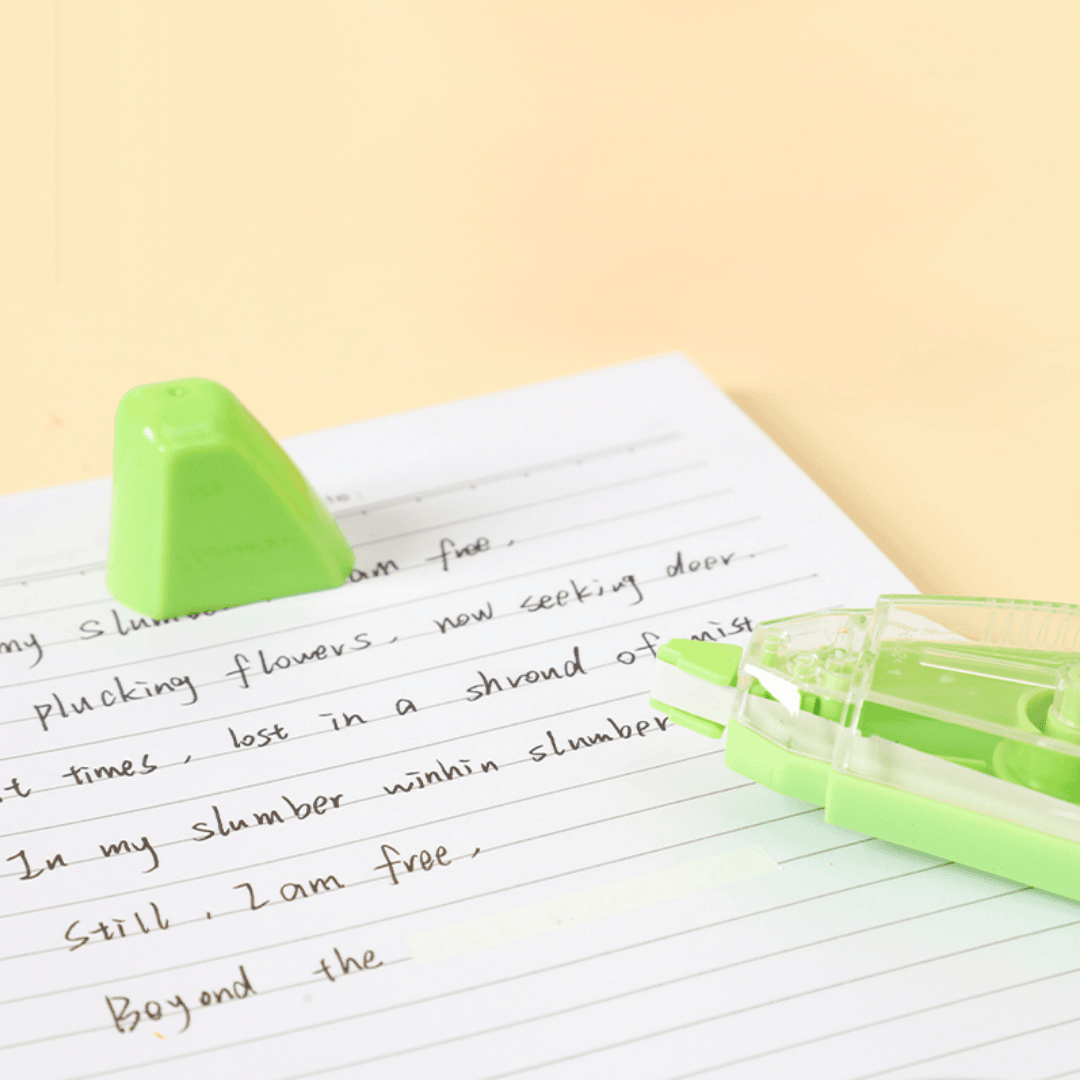 am free,
my slumber
plucking flowers, now seeking deer.
t times, lost in a shroud of mist
In my slumber winhin slumber
Still, I am free,
Beyond the